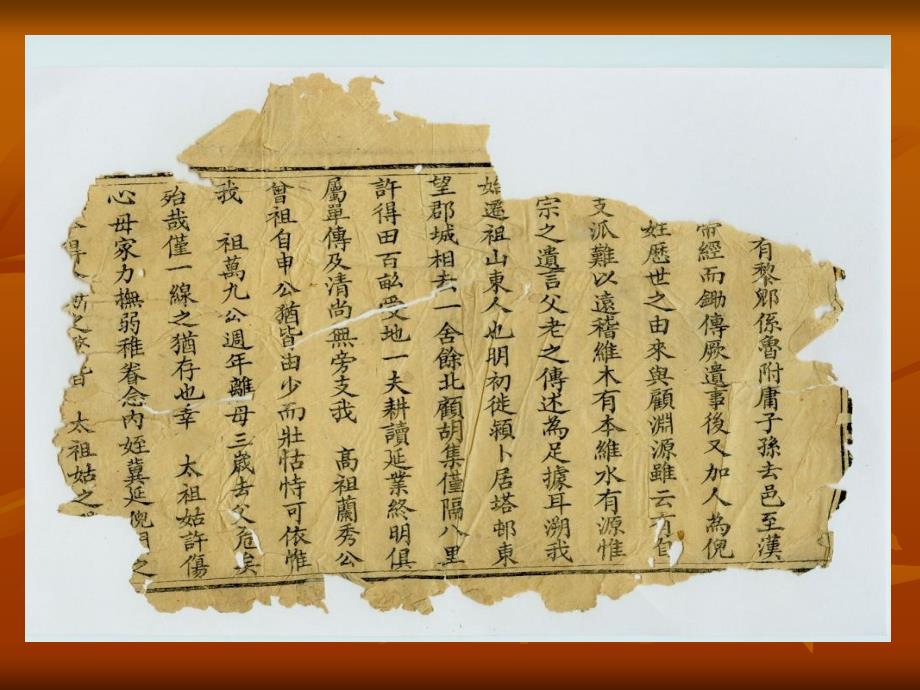 有黎郳係魯附庸子孫去邑至漢
帝經而鋤傳厥遺事後又加人為倪
姓歷世之由來與顧淵源雖云有自
支派難以遠稽維木有本維水有源惟
宗之遺言父老之傳述為足據耳溯我
始遷祖山東人也明初徙潁卜居塔邨東
望郡城相去一舍餘北顧胡集僅隔八里
許得田百畝受地一夫耕讀延業終明俱
屬單傳及清尚無旁支我 高祖蘭秀公
曾祖自申公猶皆由少而壯怙恃可依惟
我 祖萬九公週年離母三歲去父危矣
殆哉僅一線之猶存也幸 太祖姑許傷
心毋家力撫弱稚眷念內姪冀延倪門之
太祖姑之